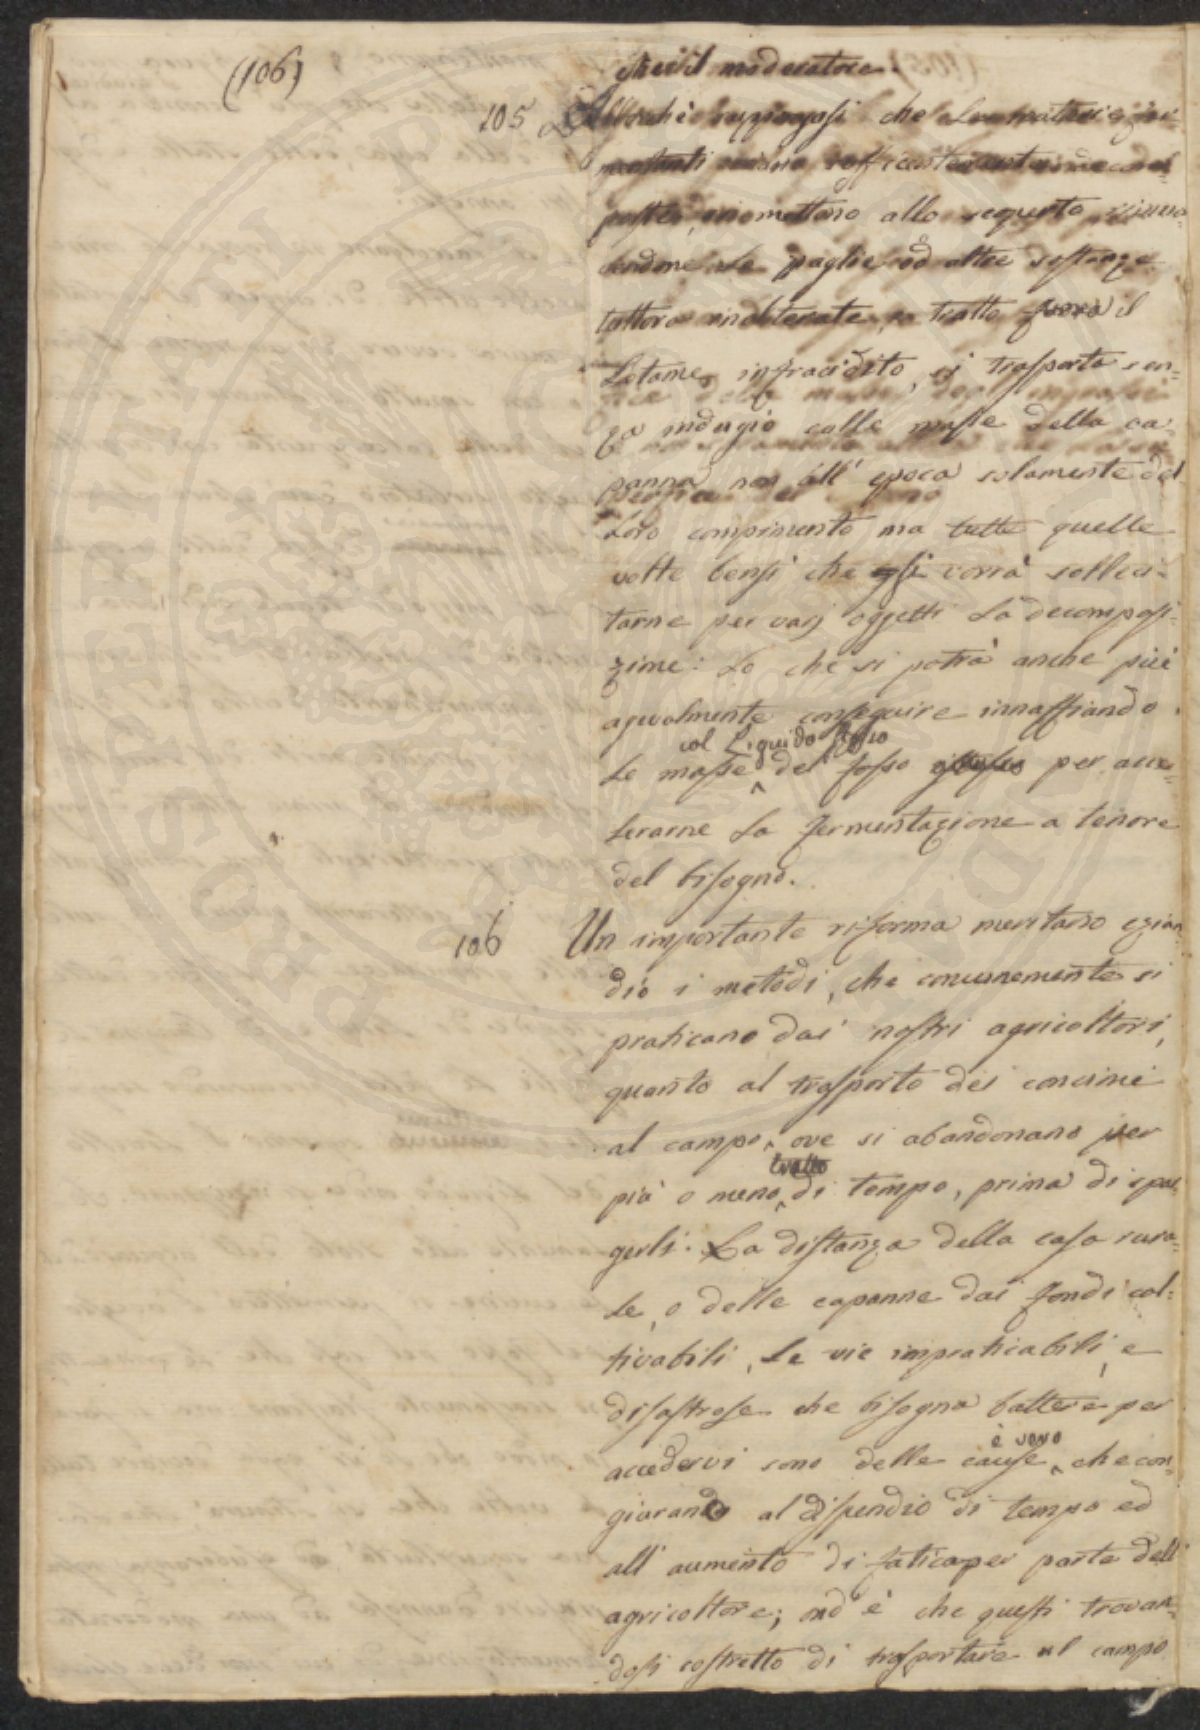 (106)
moderatore.
105 che
allo
le paglie od altre sostanze
tuttora inalterate, e tratto fuora il
Letame infracidito, si trasporta sen=
za indugio colle masse della ca=
panna non all' epoca solamente del
Loro compimento ma tutte quelle
volte bensi che si vorrà solleci=
tarne per varj oggetti la decomposi=
zione: Lo che si potrà anche più
agevolmente conseguire innaffiando
col Liquido stesso
Le masse del fosso per acce=
lerarne La fermentazione a tenore
del bisogno.
106 Un importante riforma meritano ezian=
dio i metodi, che comunemente si
praticano dai nostri agricoltori,
quanto al trasporto dei concimi
al campo, ove si abandonano per
tratto
più o meno di tempo, prima di spar=
gerli. La distanza della casa rura=
le, o delle capanne dai fondi col=
tivabili, Le vie impraticabili, e
disastrose che bisogna battere per
è vero
accedervi sono delle cause, che con=
giurando al dispendio di tempo ed
all' aumento di fatica per parte dell'
agricoltore; ond' è che questi trovan=
dosi costretto di trasportare al campo
PROSPERITATI PUBLICAE AUGENDAE